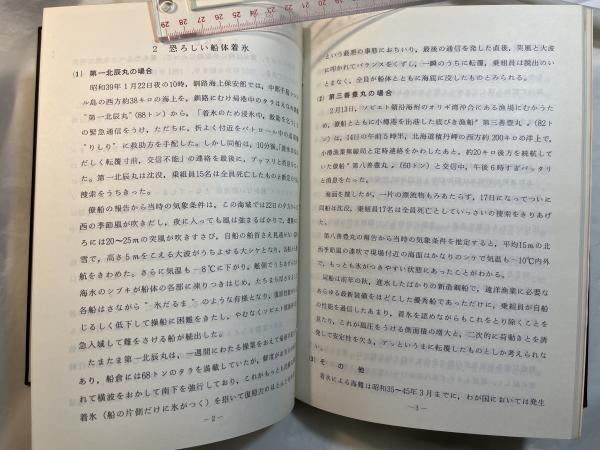 2 恐ろしい船体着氷
(1) 第一北辰丸の場合
昭和39年1月22日夜の10時,釧路海上保安部では,中部千島
ル島の西方約38キロの海上を,釧路にむけ帰港中のタラはえなわ漁船
"第一北辰丸"(88トン)から,「着氷のため浸水中,救助を
の緊急通信をうけ,ただちに,折よく付近をパトロール中の巡視船
"りしり"に救助方を手配した。しかし同船は,10分後,
だしく転覆寸前,交信不能」の連絡を最後に,プッツリと消息
た。第一北辰丸は沈没,乗組員15名は全員死亡したものと断定
捜索をうちきった。
僚船の報告から当時の気象条件は,この海域では22日の夕方から
西の季節風が吹きだし,夜に入っても風は強まるばかりで,遭難
ろには20〜25mの突風が吹きすさび,自船の船首さえ見
雪で,高さ5mをこえる大波がうちよせる大シケとなり,各船
航をきわめた。さらに気温も−8℃に下がり,舷側でうちあげ
海水のシブキが船体の各部に凍りつきはじめ,たちまち
各船はさながら"氷だるま"のような有様となり,復原性能
じるしく低下して操船に困難をきたし,やむなくソビエト領
急入域して難をさける船が続出した。
たまたま第一北辰丸は,一週間にわたる操業をおえて帰港
あり,船倉には68トンのタラを満載していたが,僚船が
れて横波をおかして南下を強行しており,これがもっとも
着氷(船の片側だけに氷がつく)を招いて復原力のほとんど
−2−
という最悪の事態におちいり,最後の通信を発した直後,突風と大波
に叩かれてバランスをくずし,一瞬のうちに転覆,乗組員は脱出のい
とまなく,全員が船体とともに海底に没したものとみられる。
(2) 第三善豊丸の場合
2月13日,ソビエト領沿海州のオリガ湾沖合にある漁場にむかうた
め,僚船とともに小樽港を出港した底びき漁船"第三善豊丸"(82ト
ン)は,14日の午前5時半,北海道積丹岬の西方約200キロの洋上で,
小樽漁業無線局と定時連絡をかわしたあと,約20キロ後方を続航して
いた僚船"第八善豊丸"(60トン)と交信中,午後6時すぎバッタリ
と消息をたった。
海面を捜したが,一片の漂流物もみあたらず,17日になってついに
同船は沈没,乗組員17名は全員死亡としていっさいの捜索をきりあげ
た。
第八善豊丸の報告から当時の気象条件を推定すると,平均15mの北
西季節風の凄吹で現場付近の海面はかなりのシケで気温も−10℃内外
で,もっとも氷がつきやすい状態にあったことがわかる。
同船は前年の秋,進水したばかりの新造鋼船で,遠洋漁業に必要な
あらゆる最新装備をほどこした優秀船であっただけに,乗組員が自船
の性能を過信したあまり,着氷を認めながらもこれをとり除くことを
怠たり,これが風圧をうける側面積の増大と,二次的に荷動きとを誘
発して安定性を欠き,アッというまに転覆したものとしか考えられな
い。
(3) その他
着氷による海難は昭和35〜45年3月までに,わが国においては発生
−3−